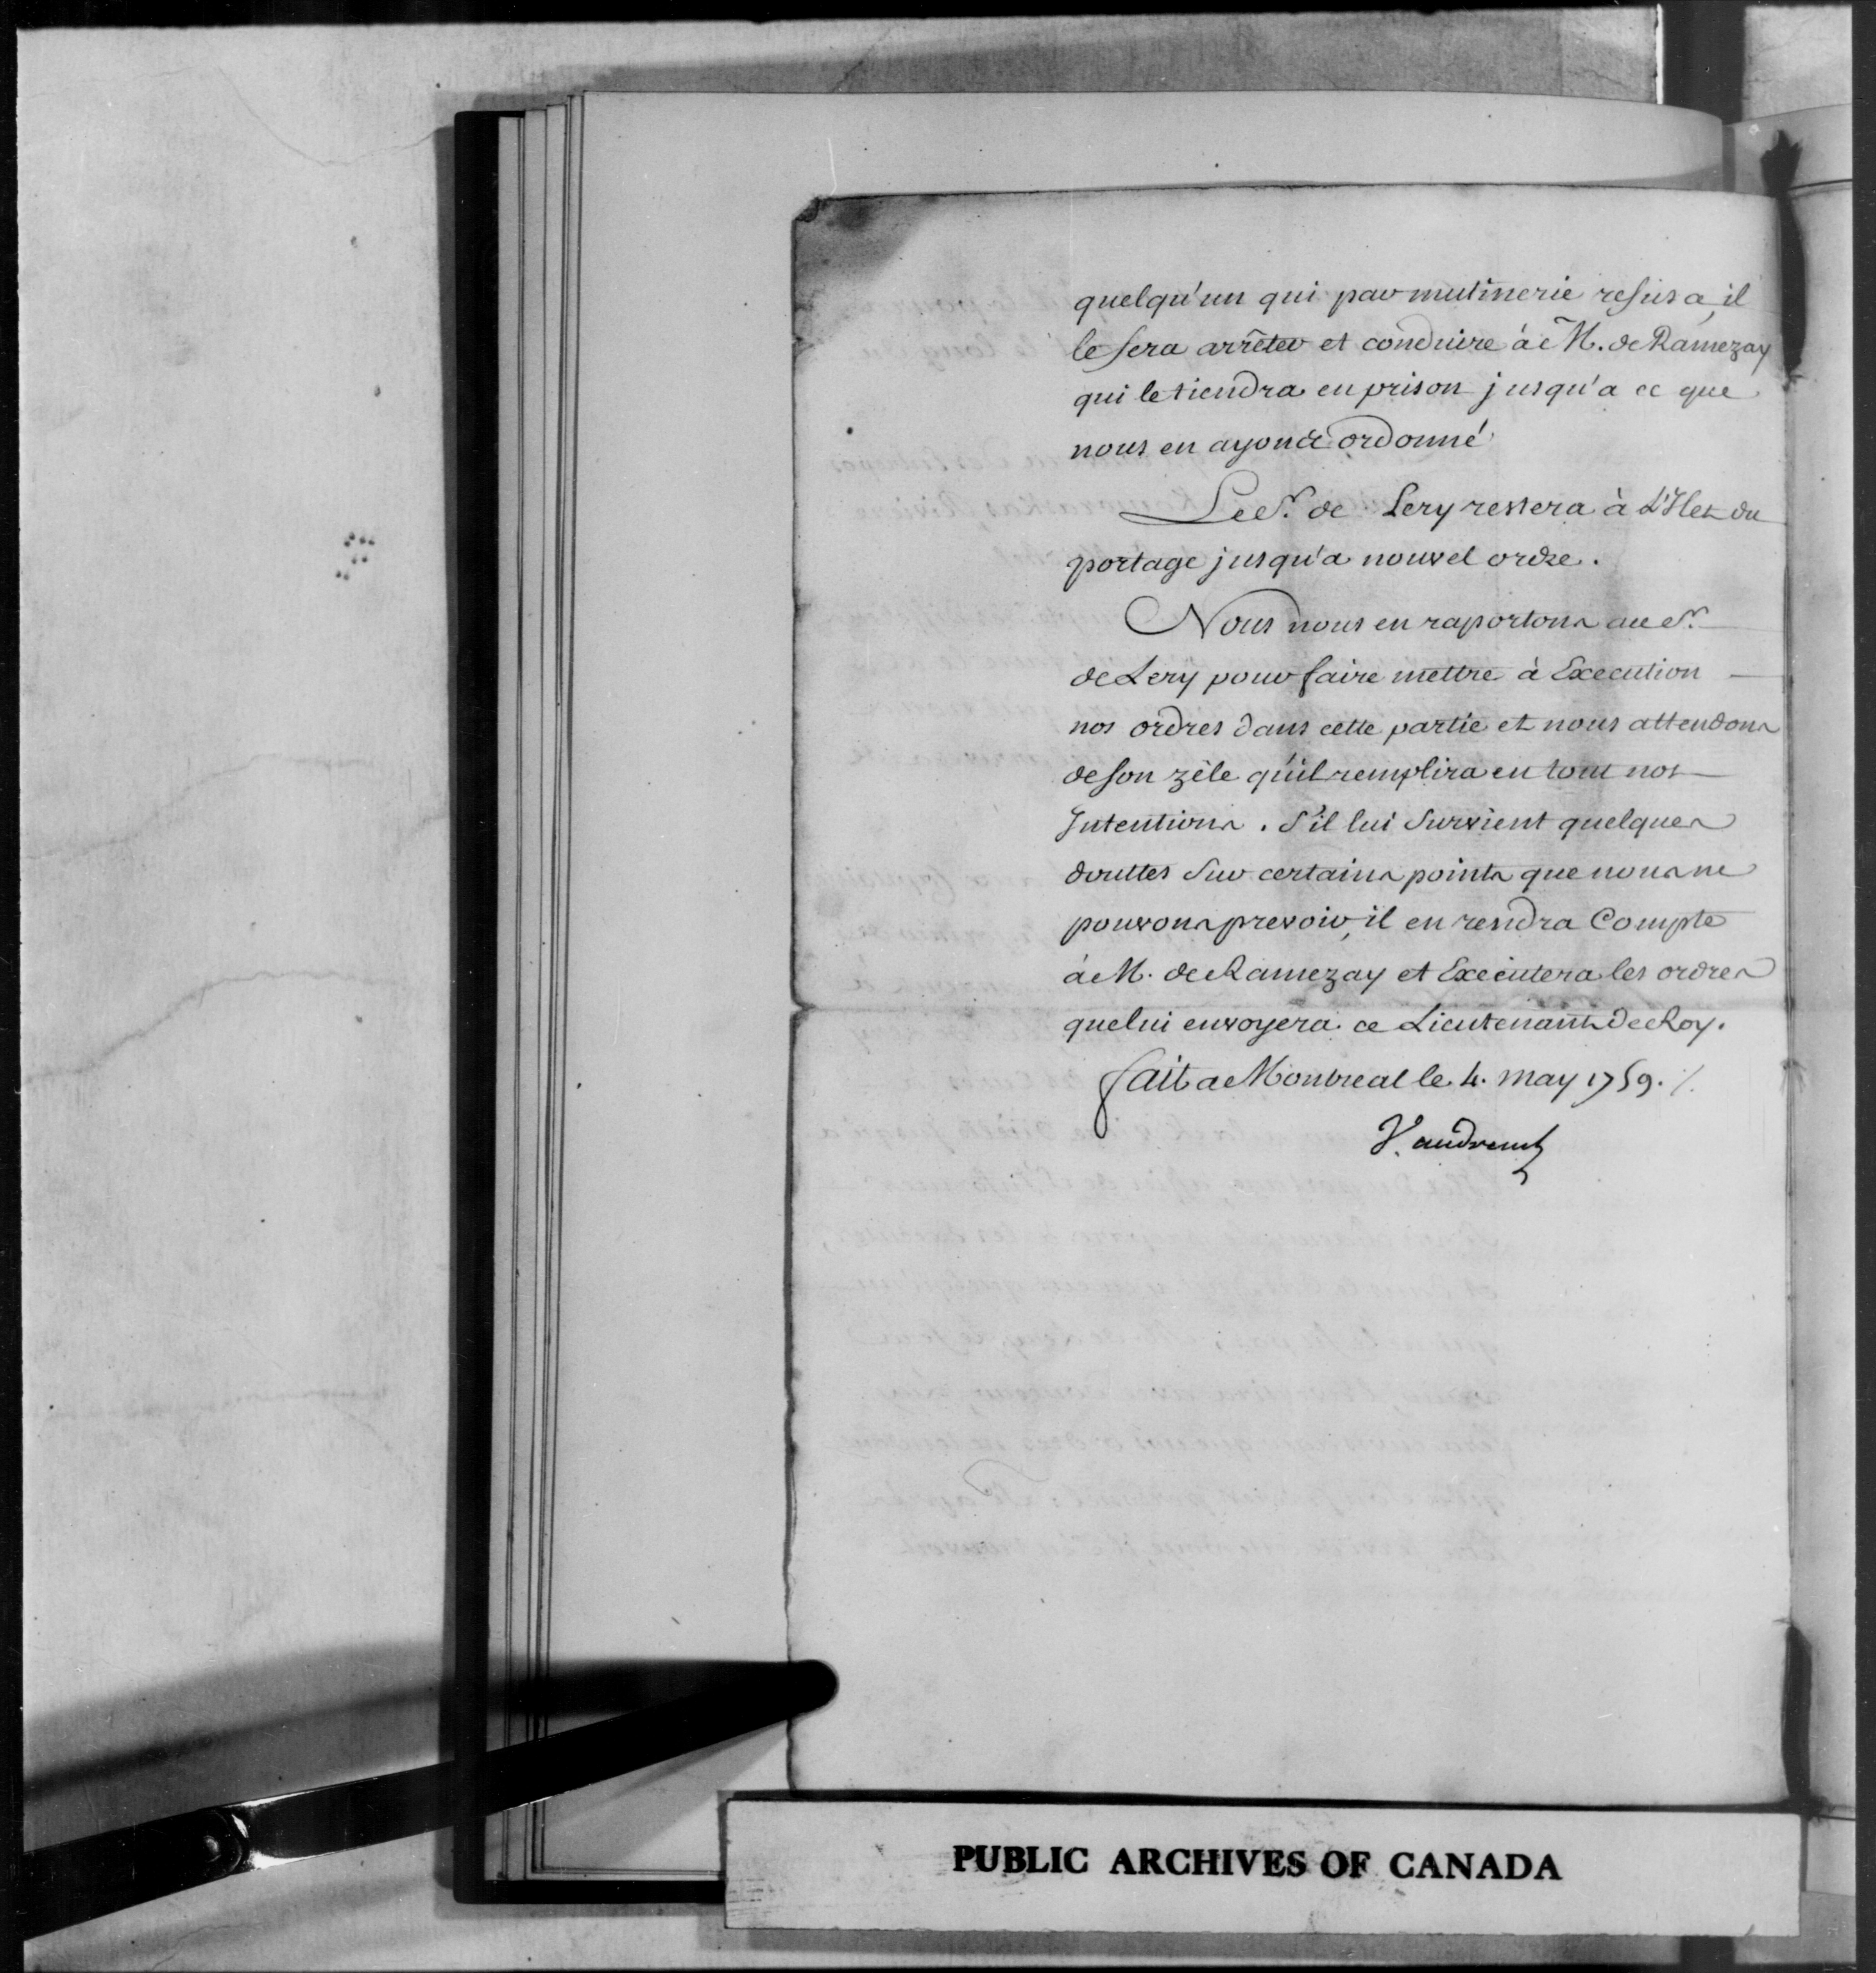 quelqu'un qui par mutinerie refusa, il
le fera arrêter et conduire à M. de Ramezay
qui le tiendra en prison jusqu'a ce que
nous en ayons ordonné
Le S. de Lery restera à L'Ilet du
portage jusqu'a nouvel ordre.
Nous nous en raportons au S.
de Lery pour faire mettre à Execution
nos ordres dans cette partie et nous attendons
de son zèle qu'il remplira en tout nos
Intentions. S'il lui Survient quelques
douttes Sur certains points que nous ne
pouvons prevoir, il en rendra Compte
à M. de Ramezay et Executera les ordres
que lui envoyera ce Lieutenant de Roy.
fait a Montreal le 4. may 1759. ٪
Vaudreuil
PUBLIC ARCHIVES OF CANADA